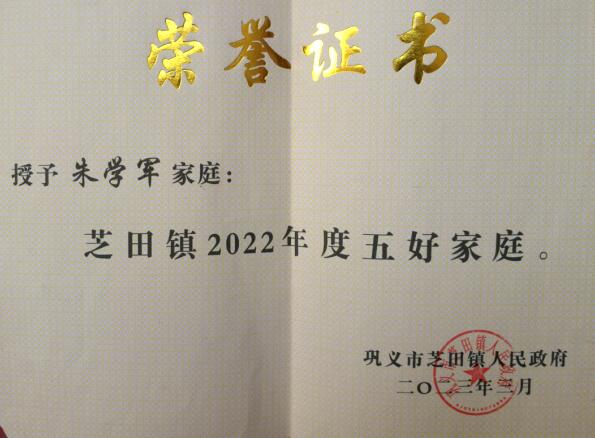 荣誉证书
授予 朱学军 家庭：
芝田镇2022年度五好家庭。
巩义市芝田镇人民政府
二〇二三年三月